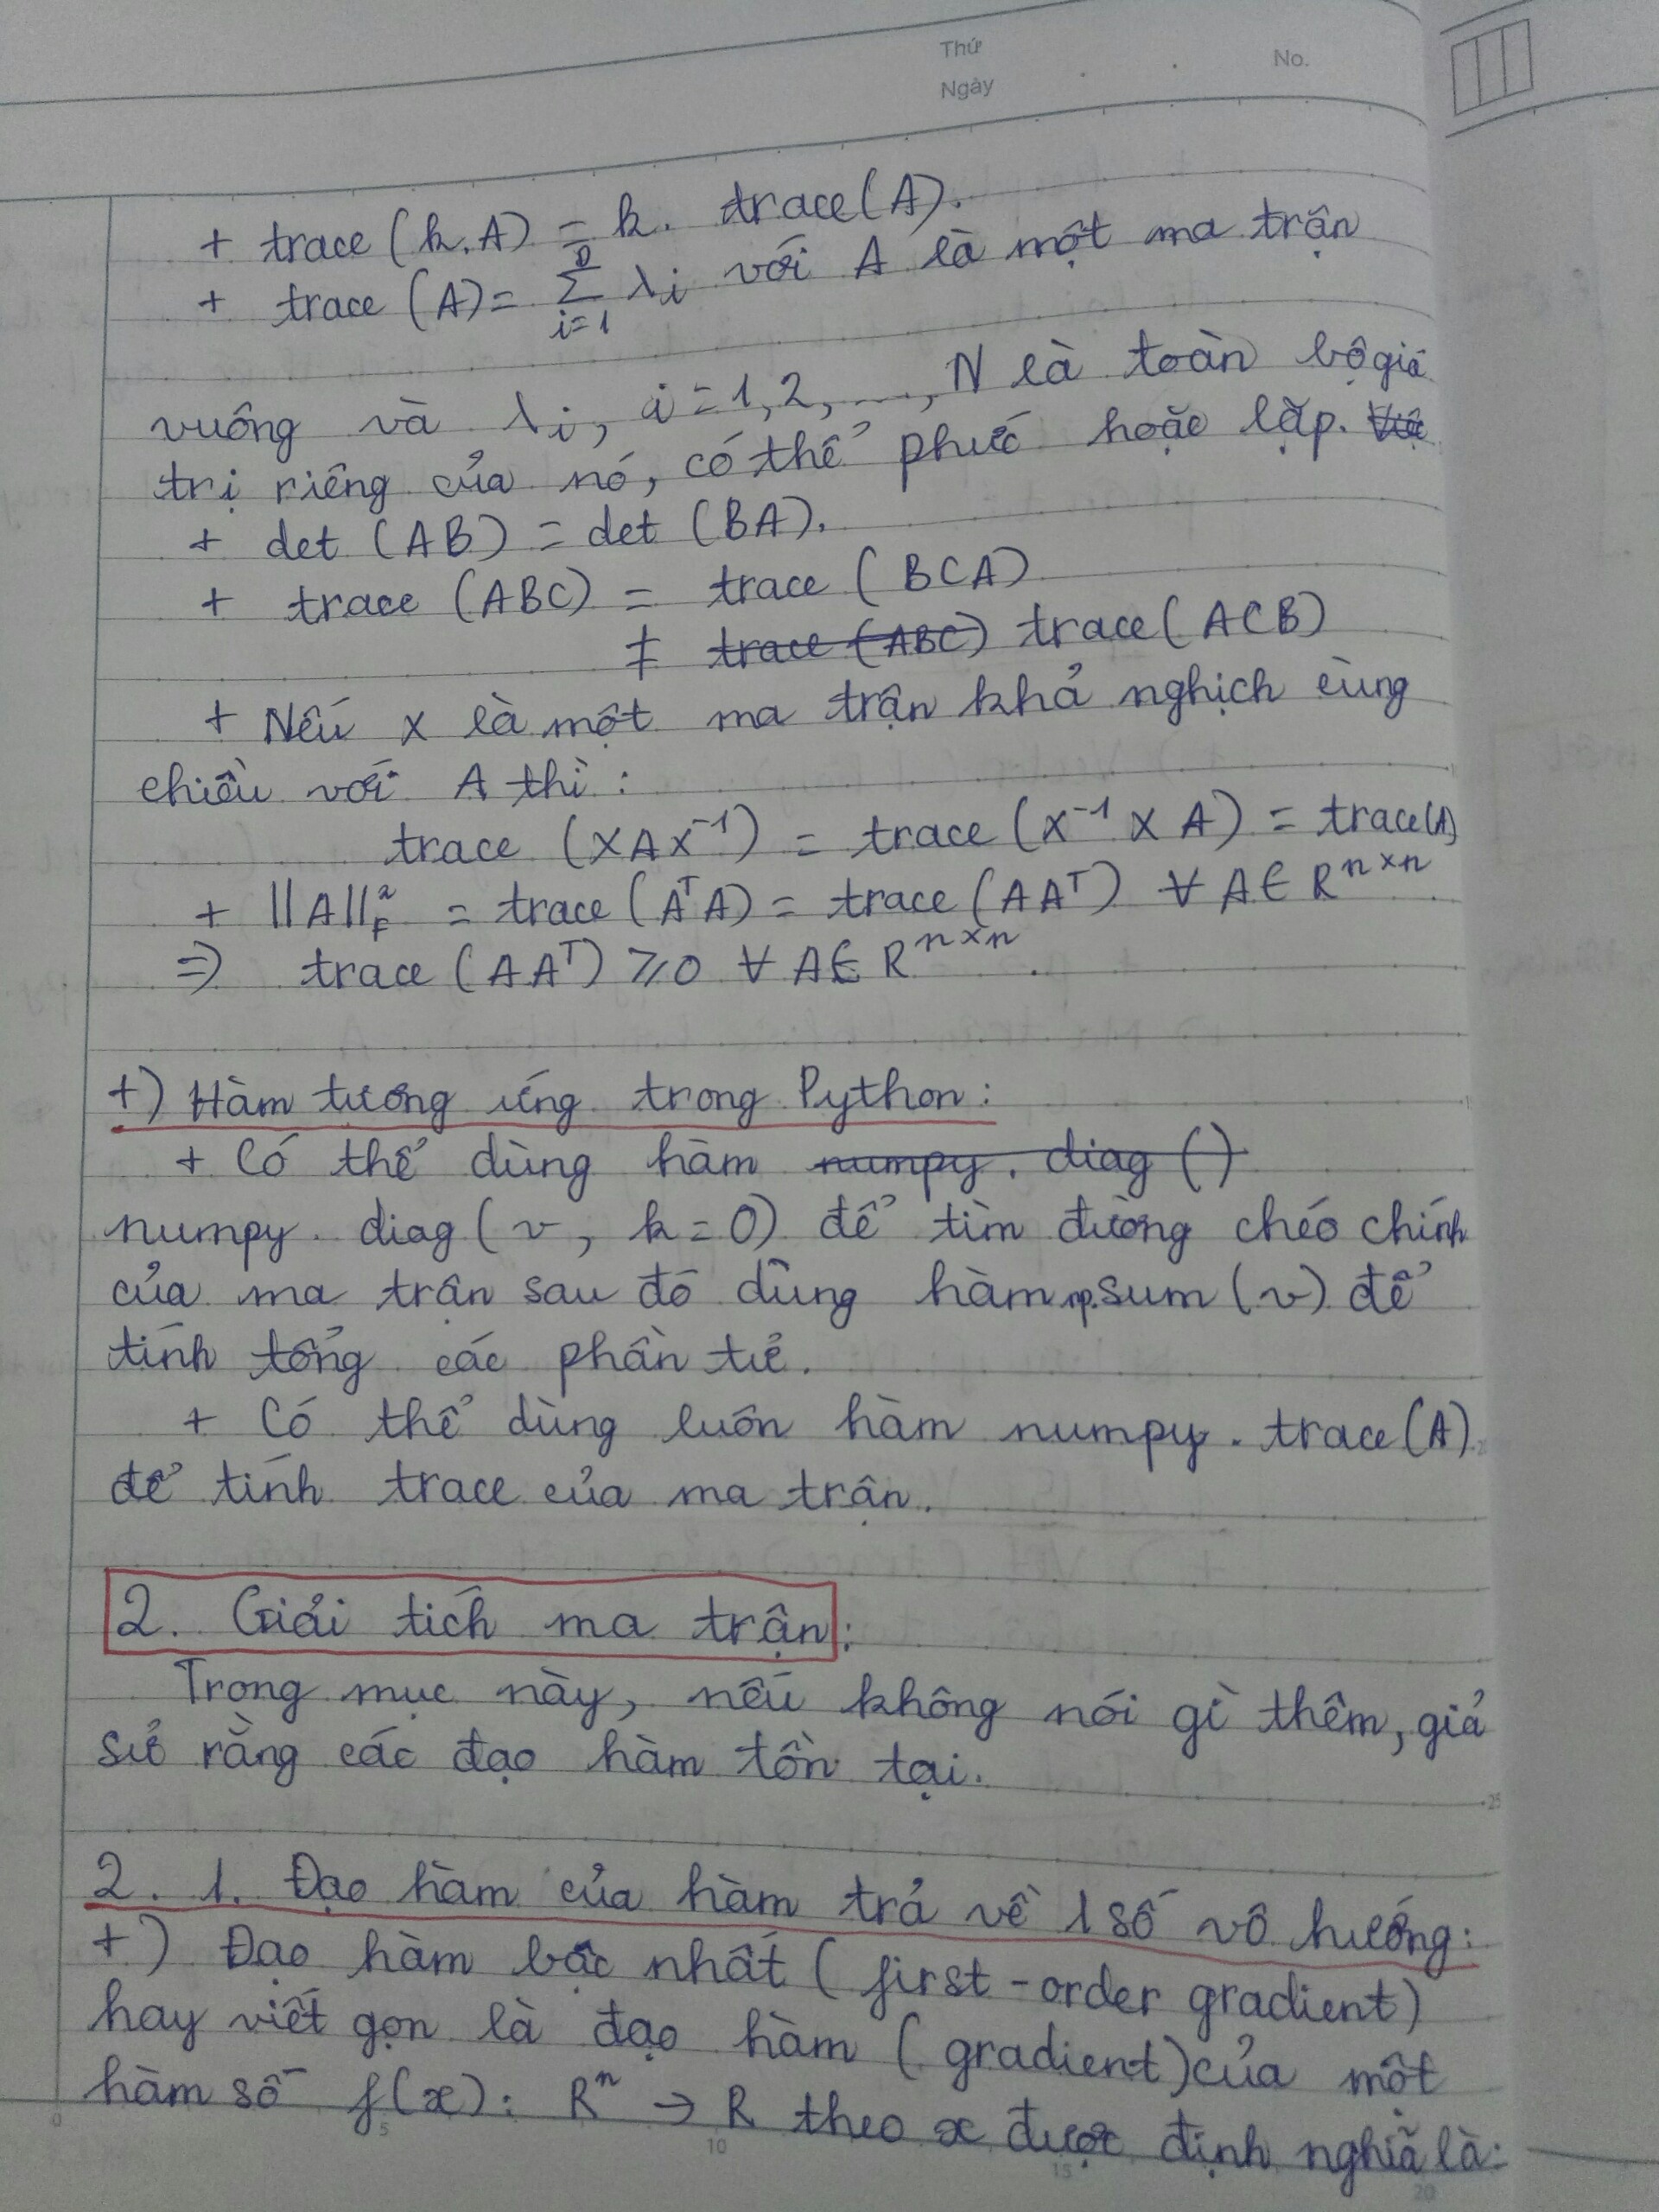 Thứ
Ngày
No.
+ trace (k.A) = k. trace(A).
+ trace (A) = D∑i=1 λi với A là một ma trận
vuông và λi, i = 1, 2, ..., N là toàn bộ giá
trị riêng của nó, có thể phức hoặc lặp.
+ det (AB) = det (BA).
+ trace (ABC) = trace (BCA)
≠ trace (ABC) trace (ACB)
+ Nếu X là một ma trận khả nghịch cùng
chiều với A thì :
trace (XAX⁻¹) = trace (X⁻¹XA) = trace(A)
+ ||A||²F = trace (AᵀA) = trace (AAᵀ) ∀ A ∈ Rⁿˣⁿ
=> trace (AAᵀ) ≥ 0 ∀ A ∈ Rⁿˣⁿ.
+) Hàm tương ứng trong Python :
+ Có thể dùng hàm numpy. diag ()
numpy. diag (v, k = 0) để tìm đường chéo chính
của ma trận sau đó dùng hàm np.sum (v) để
tính tổng các phần tử.
+ Có thể dùng luôn hàm numpy. trace(A)
để tính trace của ma trận.
2. Giải tích ma trận :
Trong mục này, nếu không nói gì thêm, giả
sử rằng các đạo hàm tồn tại.
25
2. 1. Đạo hàm của hàm trả về 1 số vô hướng :
+) Đạo hàm bậc nhất (first-order gradient)
hay viết gọn là đạo hàm (gradient) của một
hàm số f(x) : Rⁿ → R theo x được định nghĩa là :
0 5 10 15 20